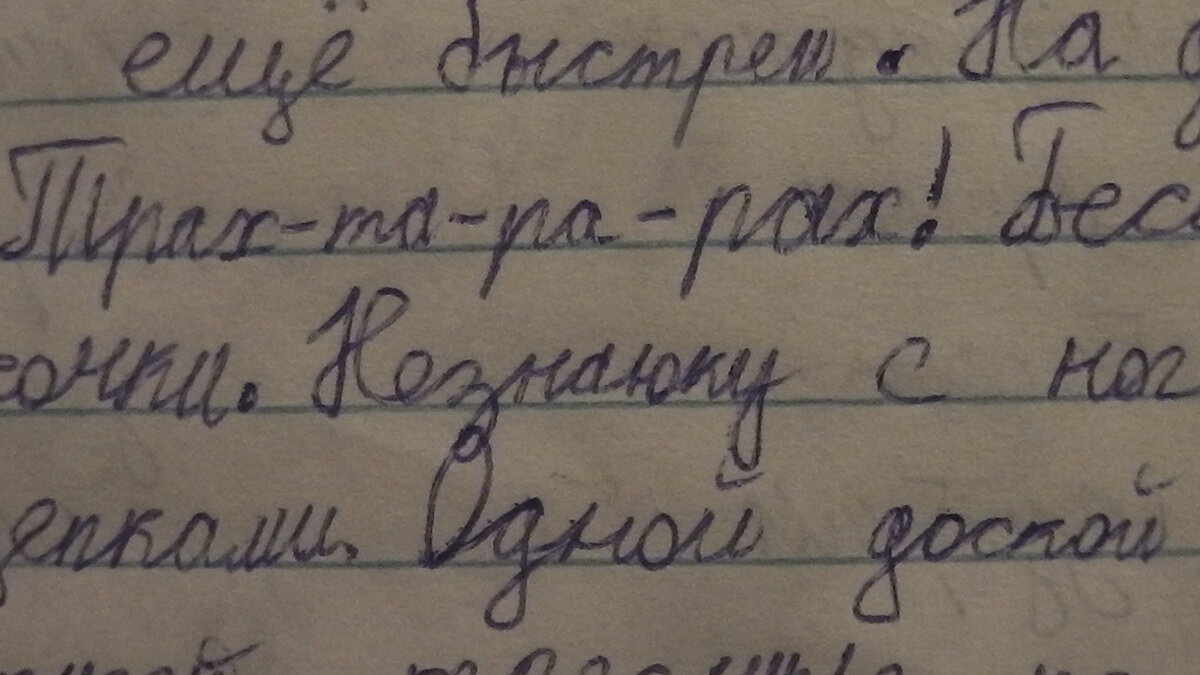 ещё быстрей. На
Трах-та-ра-рах! Бес
сочки. Незнайку с ног
щепками. Одной доской